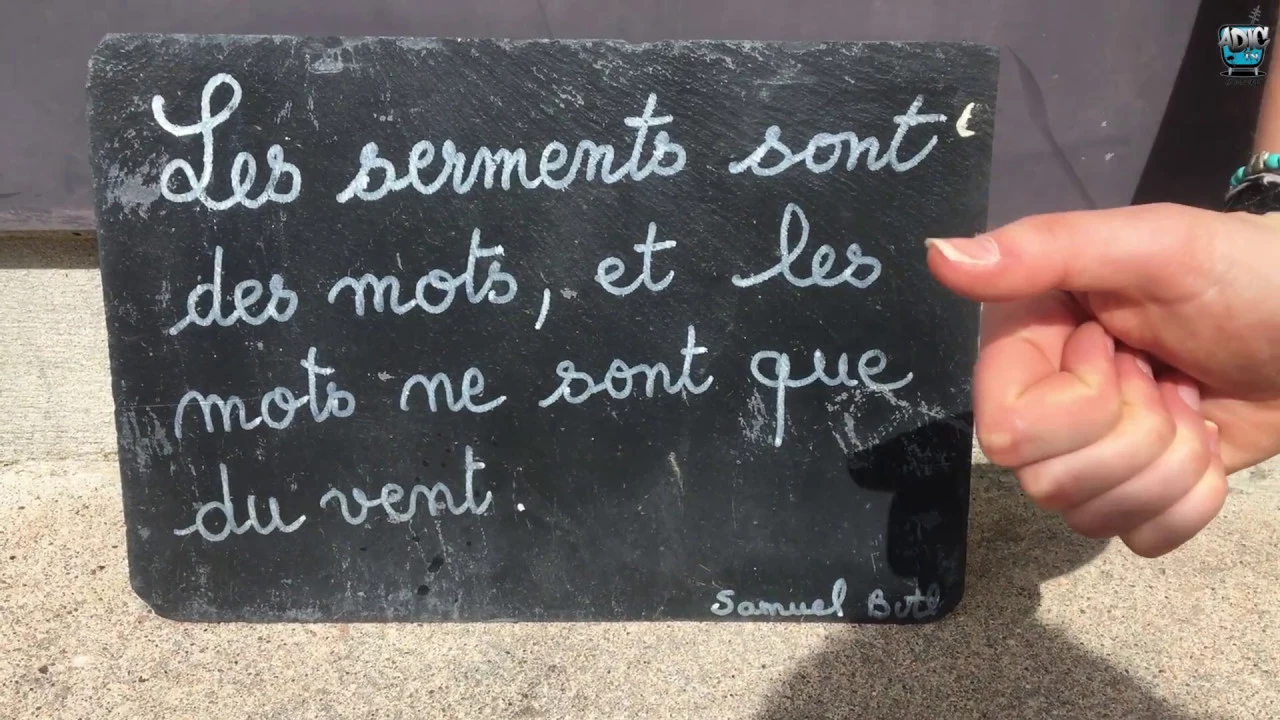 Les serments sont
des mots, et les
mots ne sont que
du vent.
Samuel Butl
ADIC